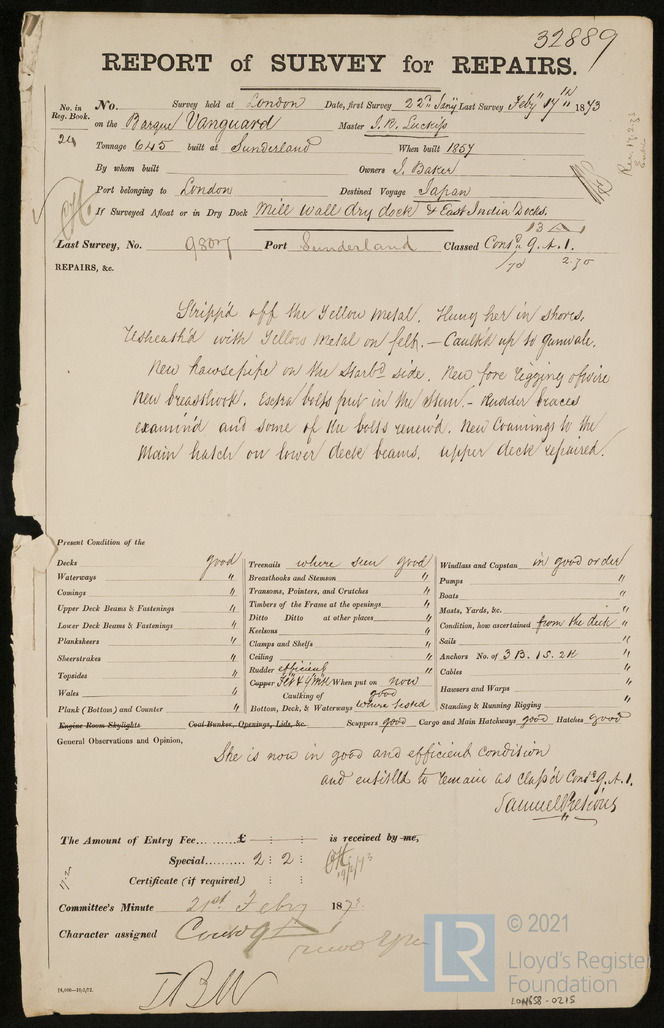 32889
REPORT of SURVEY for REPAIRS.
No. in Reg. Book.
No. Survey held at London Date, first Survey 22nd Jany Last Survey Feby 17th 1873
24 on the Barque Vanguard Master J. R. Luckiss
Tonnage 645 built at Sunderland When built 1857
By whom built Owners J. Baker
Port belonging to London Destined Voyage Japan
If Surveyed Afloat or in Dry Dock Mill wall dry dock & East India Docks.
13 A 1
Last Survey, No. 9807 Port Sunderland Classed Contd 9. A. 1.
2.70
REPAIRS, &c.
Stripp'd off the Yellow Metal. Hung her in shores,
resheath'd with Yellow Metal on felt. - Caulk'd up to gunwale.
New hawsepipe on the Starbd side. New fore rigging of wire
New breasthook. Extra bolts put in the Stem. - Rudder braces
examin'd and some of the bolts renew'd. New Coamings to the
Main hatch on lower deck beams. upper deck repaired.
Present Condition of the
Decks good Treenails where seen good Windlass and Capstan in good order
Waterways " Breasthooks and Stemson " Pumps "
Comings " Transoms, Pointers, and Crutches " Boats "
Upper Deck Beams & Fastenings " Timbers of the Frame at the openings " Masts, Yards, &c. "
Lower Deck Beams & Fastenings " Ditto Ditto at other places " Condition, how ascertained from the deck
Planksheers " Keelsons " Sails "
Sheerstrakes " Clamps and Shelfs " Anchors No. of 3 B. 1 S. 2 K
Topsides " Ceiling " Cables "
Wales " Rudder efficient Hawsers and Warps "
Copper Felt & YM When put on now
Plank (Bottom) and Counter " Caulking of Bottom, Deck, & Waterways good where tested Standing & Running Rigging "
Engine Room Skylights Coal Bunker, Openings, Lids, &c. Scuppers good Cargo and Main Hatchways good Hatches good
General Observations and Opinion,
She is now in good and efficient condition
and entitled to remain as class'd Contd 9. A. 1.
Samuel Pretious
The Amount of Entry Fee £ : : is received by me,
Special 2 : 2 :
19/2/73
Certificate (if required) : :
Committee's Minute 21st Feby 1873.
Character assigned Contd 9 A 1
14,000-10/2/72.
© 2021
LR
Lloyd's Register
Foundation
LON658-0215